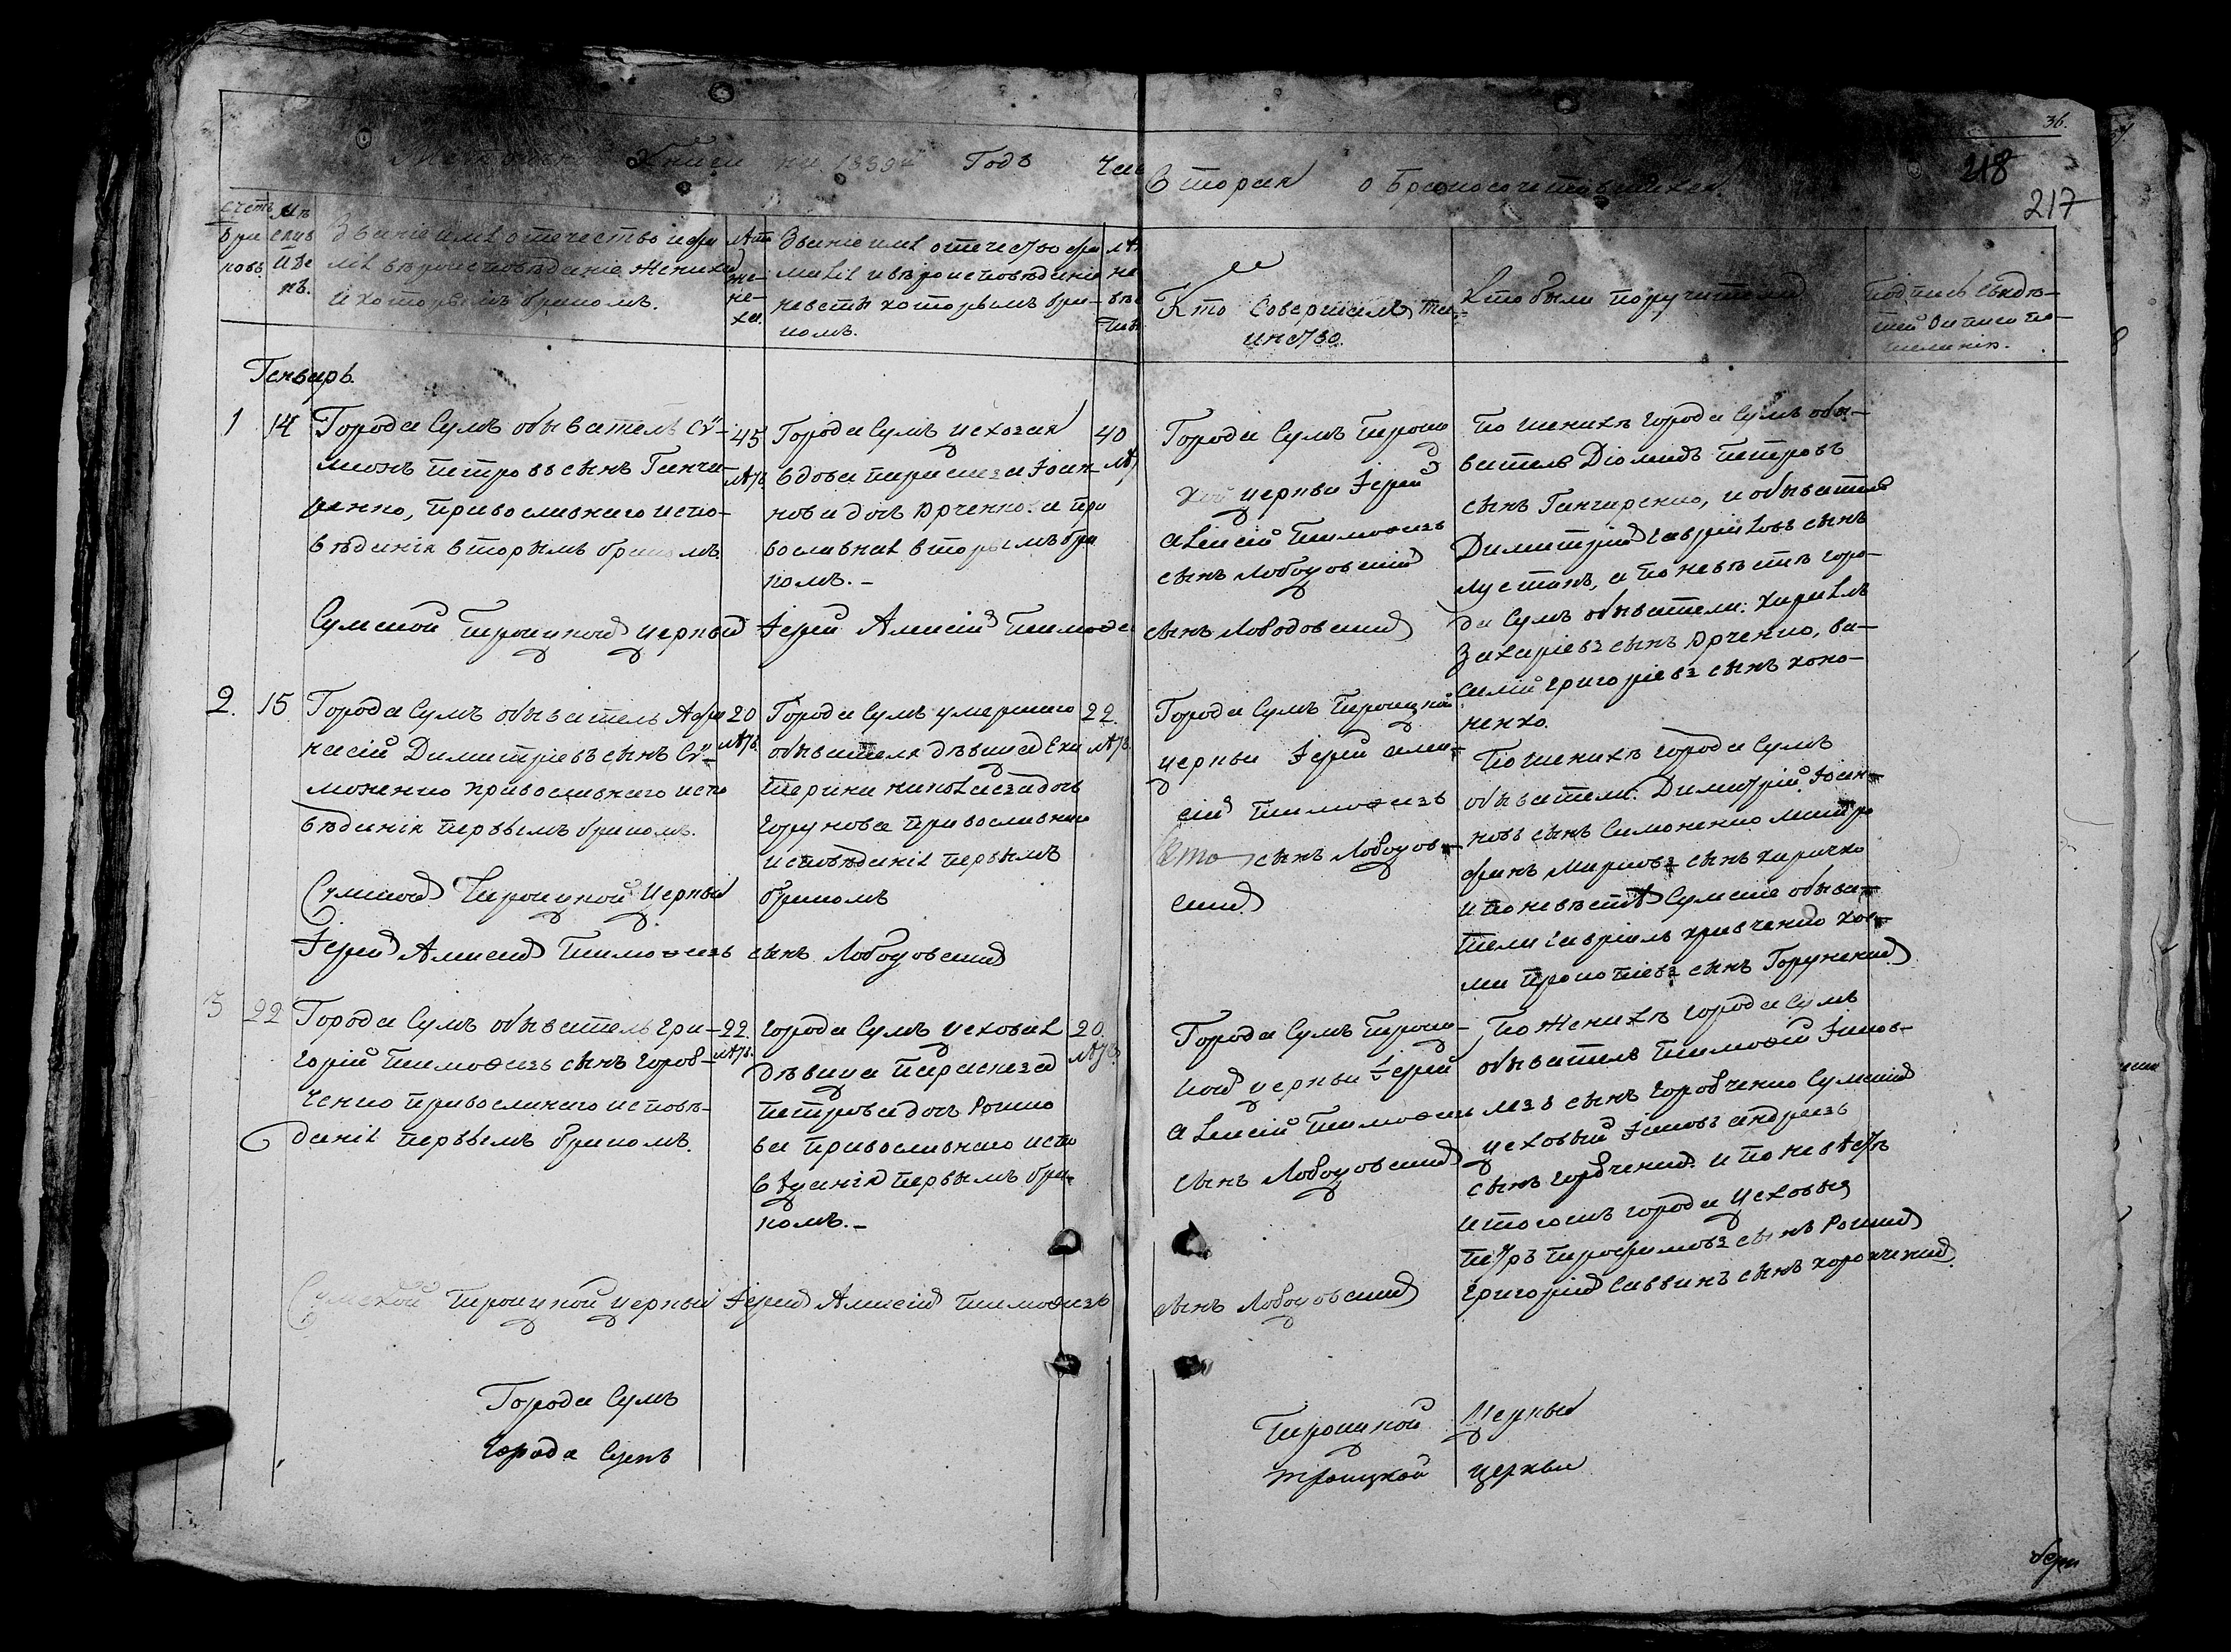 36.
Метической Книги на 1839й Годъ Час
Вторая о Бракосочетавшихся
218
217
Счетъ браковъ.
Мѣсяцъ и день.
Званіе имя отечество и фами
лія вѣроисповѣданіе Жениха
и которымъ бракомъ.
Лѣта
же-
ни-
ха.
Званіе имя отечество фа
милія и вѣроисповѣданіе
невесты которымъ бра-
комъ.
Кто Совершалъ та-
инство.
Кто были поручители
подпись свидѣ-
телей
Генварь
1
14
Города Сумъ обыватель Сѵ-
меонъ Петровъ сынъ Ганча-
ренко, православнаго испо-
вѣданія вторымъ бракомъ.
45
лѣтъ
Города Сумъ цеховая
вдова Параскева Іоан-
нова дочь Юрченкова пра
вославная вторымъ бра
комъ.-
40
лѣт
Города Сумъ Троиц
кой церкви Іерей
Алексій Тимофеевъ
сынъ Лободовскій
По женихѣ города Сумъ обы-
ватель Діомидъ Петровъ
сынъ Ганчаренко, и обыватель
Димитрій Гавріиловъ сынъ
а по невѣстѣ горо-
да Сумъ обыватели: Кириллъ
Захаріевъ сынъ Юрченко, Ва-
силій Григоріевъ сынъ Коно-
ненко.
Сумской Троицкой церкви Іерей Алексій Тимофе сынъ Лободовскій
2.
15
Города Сумъ обыватель Афа
насій Димитріевъ сынъ Сѵ-
моненко православнаго испо
вѣданія первымъ бракомъ.
20
лѣтъ.
Города Сумъ умершаго
обывателя дѣвица Ека
терина дочь
Горунова православнаго
исповѣданія первымъ
бракомъ
22.
лѣтъ.
Города Сумъ Троицкой
церкви Іерей Алек-
сій Тимофеевъ
сынъ Лободов-
скій
По женихѣ города Сумъ
обыватели: Димитрій Іоан-
новъ сынъ Симоненко Митро
фанъ Марковъ сынъ Киричко
и по невѣстѣ Сумскіе обыва-
тели Гавріилъ Кравченко
Прокопіевъ сынъ Горуненко
Сумской Троицкой Церкви
Іерей Алексій Тимофеевъ сынъ Лободовскій
3
22
Города Сумъ обыватель Гри-
горій Тимофеевъ сынъ Горов-
ченко православнаго исповѣ-
данія первымъ бракомъ.
22
лѣтъ.
города Сумъ цеховая
дѣвица Параскева
Петрова дочь Рошко
ва православнаго испо
вѣданія первымъ бра-
комъ.-
20.
лѣтъ
Города Сумъ Троиц-
кой церкви Іерей
Алексій Тимофеи
сынъ Лободовскій
По Женихѣ города Сумъ
обыватель Тимофій Іаков-
левъ сынъ Горовченко Сумскій
цеховый Іаковъ Андреевъ
сынъ Горовченко. и по невѣстѣ
и тогожъ города Цеховые
Петръ Трофимовъ сынъ Рошко
Григорій Саввинъ сынъ
Сумской Троицкой церкви Іерей Алексій Тимофеевъ сынъ Лободовскій
Города Сумъ Троицкой Церкви
города Сумъ Троицкой церкви